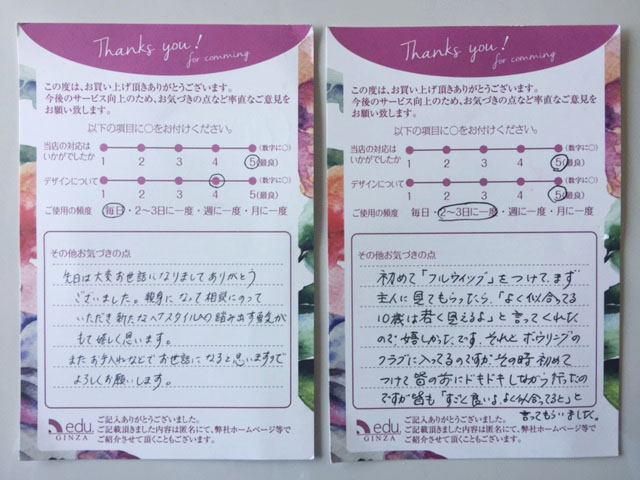 Thanks you!
for comming
この度は、お買い上げ頂きありがとうございます。
今後のサービス向上のため、お気づきの点など率直なご意見を
お願い致します。
以下の項目に○をお付けください。
当店の対応は
いかがでしたか
(数字に○)
1 2 3 4 5(最良)
デザインについて
(数字に○)
1 2 3 4 5(最良)
ご使用の頻度 毎日・2〜3日に一度・週に一度・月に一度
その他お気づきの点
先日は大変お世話になりましてありがとう
ございました。親身になって相談にのって
いただき新たなヘアスタイルへの踏み出す勇気が
もて嬉しく思います。
またお手入れなどでお世話になると思いますので
よろしくお願いします。
edu
GINZA
ご記入ありがとうございました。
ご記載頂きました内容は匿名にて、弊社ホームページ等で
ご紹介させて頂くこともございます。
Thanks you!
for comming
この度は、お買い上げ頂きありがとうございます。
今後のサービス向上のため、お気づきの点など率直なご意見を
お願い致します。
以下の項目に○をお付けください。
当店の対応は
いかがでしたか
(数字に○)
1 2 3 4 5(最良)
デザインについて
(数字に○)
1 2 3 4 5(最良)
ご使用の頻度 毎日・2〜3日に一度・週に一度・月に一度
その他お気づきの点
初めて「フルウイッグ」をつけて、まず
主人に見てもらったら、「よく似合ってる
10歳は若く見えるよ」と言ってくれた
ので嬉しかったです。それとボウリングの
クラブに入ってるのですが、その時初めて
つけて皆の前にドキドキしながら行ったの
ですが皆も「すごく良いよ、よく似合ってると」と
言ってもらいました。
edu
GINZA
ご記入ありがとうございました。
ご記載頂きました内容は匿名にて、弊社ホームページ等で
ご紹介させて頂くこともございます。